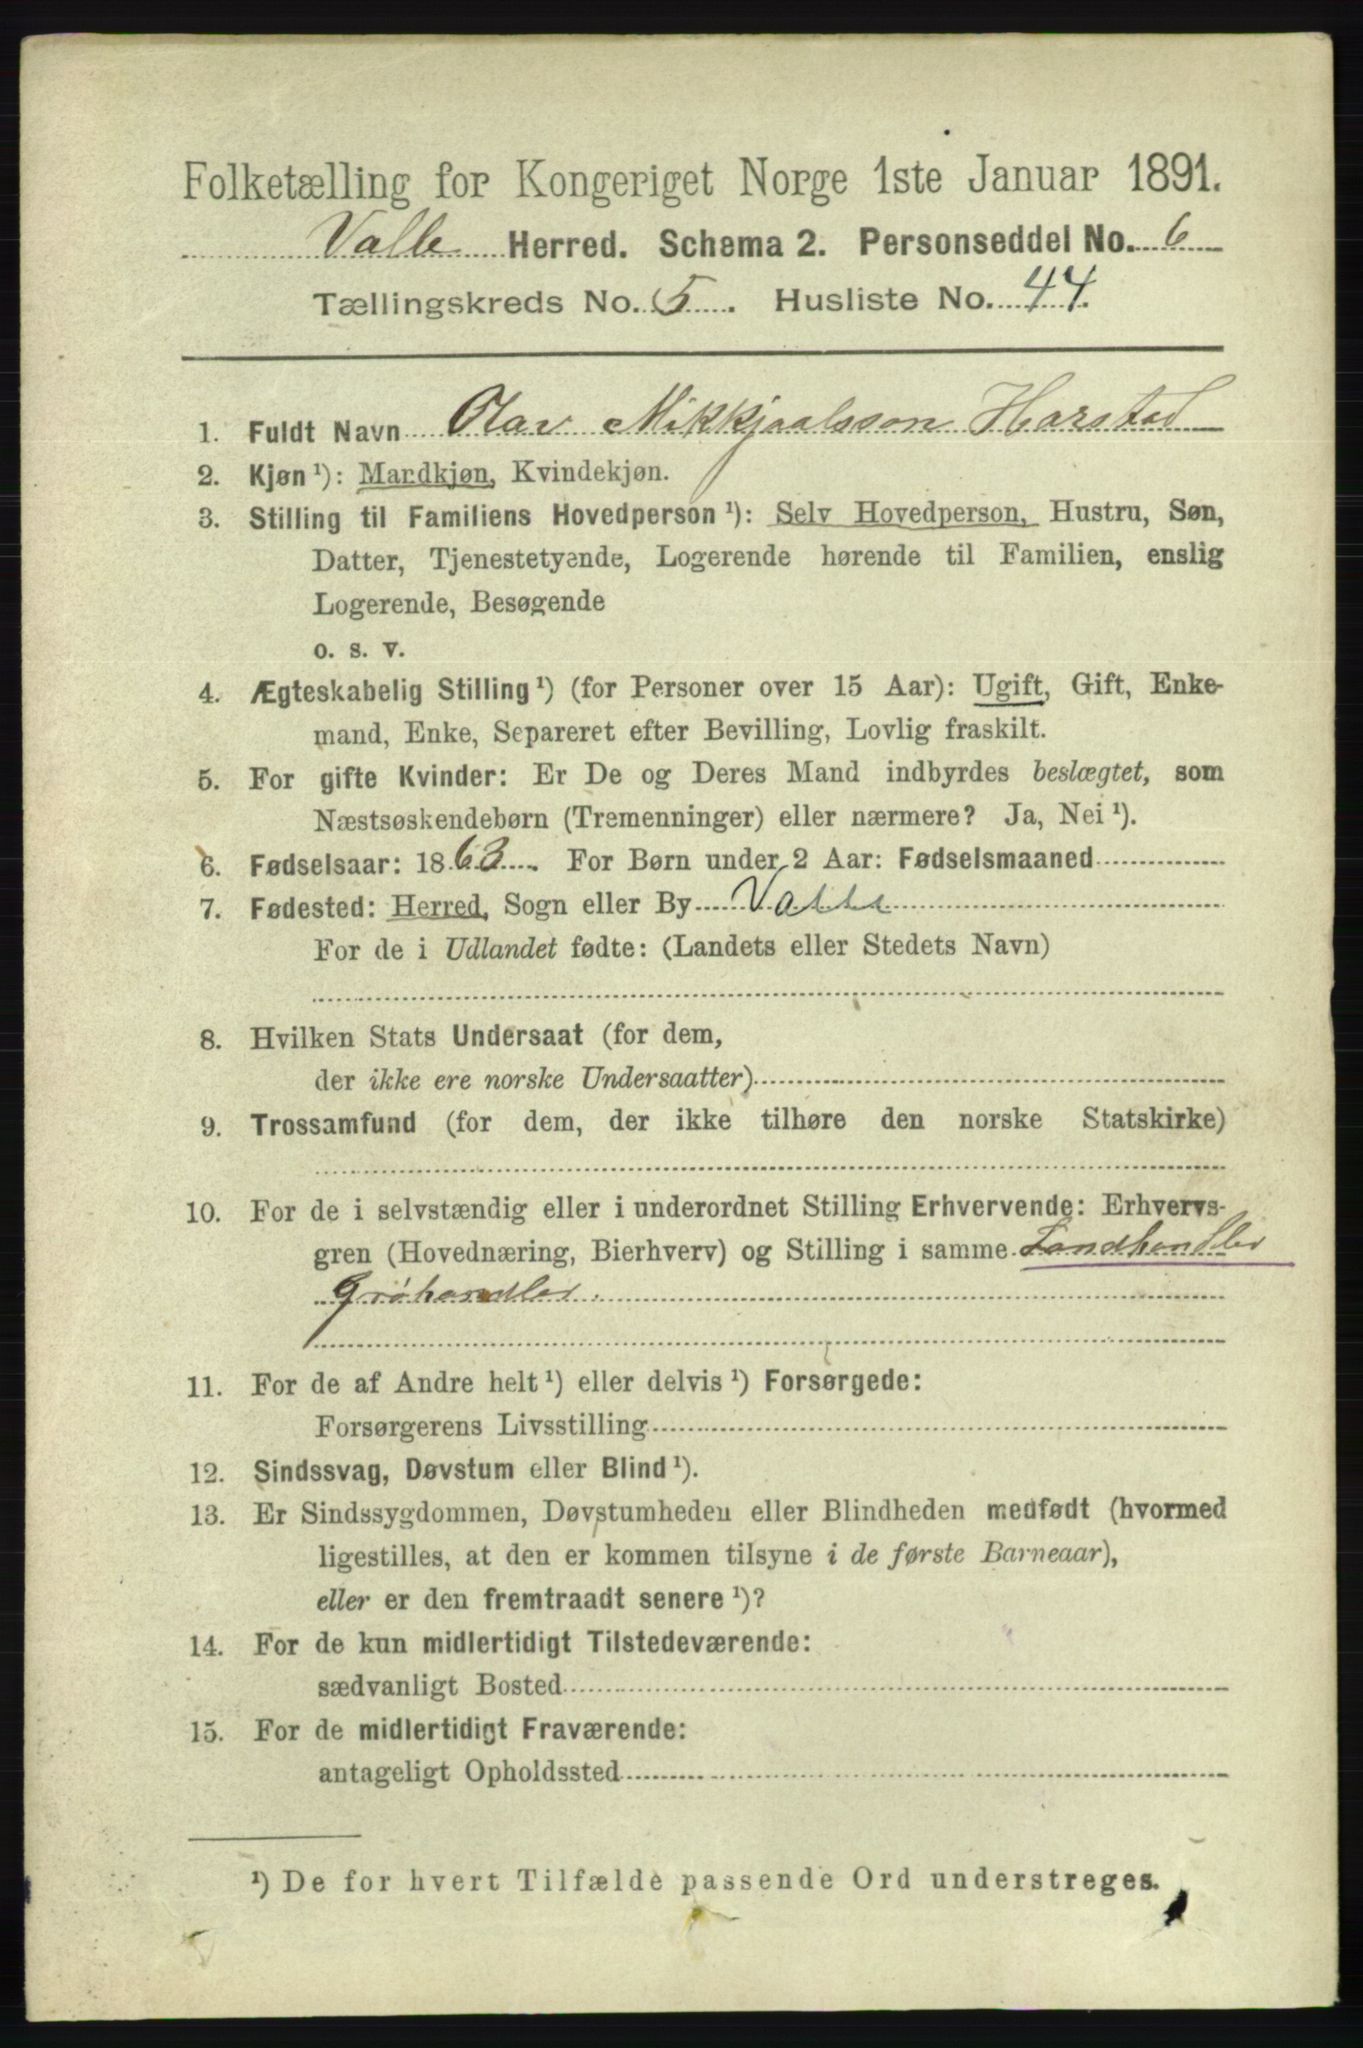 Folketælling for Kongeriget Norge 1ste Januar 1891.
Valle Herred. Schema 2. Personseddel No. 6
Tællingskreds No. 5. Husliste No. 44.
1. Fuldt Navn Olav Mikkjaalsson Harstad
2. Kjøn ¹): Mandkjøn, Kvindekjøn.
3. Stilling til Familiens Hovedperson ¹): Selv Hovedperson, Hustru, Søn,
Datter, Tjenestetyende, Logerende hørende til Familien, enslig
Logerende, Besøgende
o. s. v.
4. Ægteskabelig Stilling ¹) (for Personer over 15 Aar): Ugift, Gift, Enke-
mand, Enke, Separeret efter Bevilling, Lovlig fraskilt.
5. For gifte Kvinder: Er De og Deres Mand indbyrdes beslægtet, som
Næstsøskendebørn (Tremenninger) eller nærmere? Ja, Nei ¹).
6. Fødselsaar: 1863. For Børn under 2 Aar: Fødselsmaaned
7. Fødested: Herred, Sogn eller By Valle
For de i Udlandet fødte: (Landets eller Stedets Navn)
8. Hvilken Stats Undersaat (for dem,
der ikke ere norske Undersaatter)
9. Trossamfund (for dem, der ikke tilhøre den norske Statskirke)
10. For de i selvstændig eller i underordnet Stilling Erhvervende: Erhvervs-
gren (Hovednæring, Bierhverv) og Stilling i samme Landhandler
Grøhandler.
11. For de af Andre helt ¹) eller delvis ¹) Forsørgede:
Forsørgerens Livsstilling
12. Sindssvag, Døvstum eller Blind ¹).
13. Er Sindssygdommen, Døvstumheden eller Blindheden medfødt (hvormed
ligestilles, at den er kommen tilsyne i de første Barneaar),
eller er den fremtraadt senere ¹)?
14. For de kun midlertidigt Tilstedeværende:
sædvanligt Bosted
15. For de midlertidigt Fraværende:
antageligt Opholdssted
¹) De for hvert Tilfælde passende Ord understreges.